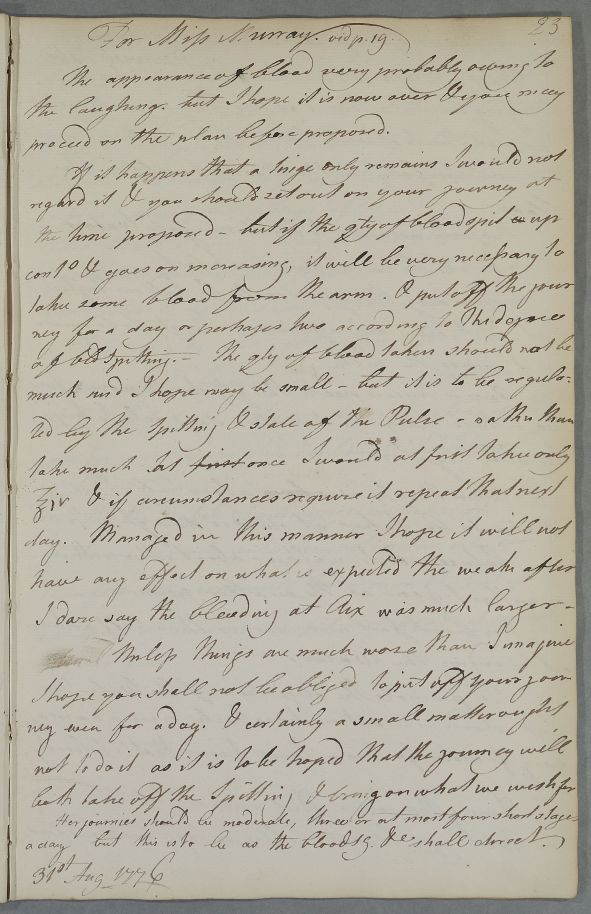 For Miss Murray. vid p. 19.
23
The appearance of blood very probably owing to
the laughing. but I hope it is now over & you may
proceed on the plan before proposed.
If it happens that a tinge only remains I would not
regard it & you should set out on your journey at
the time proposed – but if the qty of blood spit up
contd & goes on increasing, it will be very necessary to
take some blood from the arm. & put off the jour
ney for a day or perhaps two according to the degree
of bld spitting. – The qty of blood taken should not be
much and I hope may be small – but it is to be regula-
ted by the spitting & state of the Pulse – rather than
take much at first once I would at first take only
℥iv & if circumstances require it repeat that next
day. Managed in this manner I hope it will not
have any effect on what is expected the week after
I dare say the bleeding at Aix was much larger –
Unless things are much worse than I imagine
I hope you shall not be obliged to put off your jour
ney even for a day. & certainly a small matter ought
not to do it as it is to be hoped that the journey will
both take off the Spitting & bring on what we wish for
Her journies should be moderate, three or at most four short stages
a day but this is to be as the bloodsg. &c shall direct.
31st Aug 1776